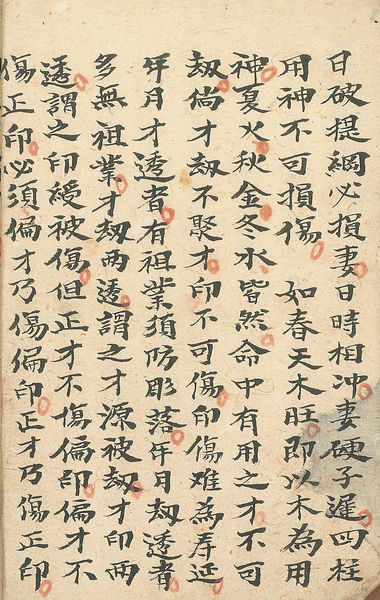 日破提綱必損妻日時相冲妻硬子遲四柱
用神不可損傷 如春天木旺即以木為用
神夏火秋金冬水皆然命中有用之才不可
劫倘才劫不聚才印不可傷印傷難為壽延
年月才透者有祖業須防彫落年月劫透者
多無祖業才劫兩透謂之才源被劫才印兩
透謂之印綬被傷但正才不傷偏印偏才不
傷正印必須偏才乃傷偏印正才乃傷正印